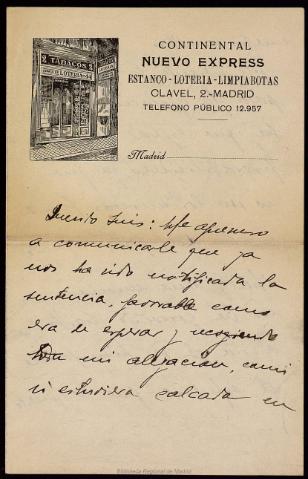 CONTINENTAL
NUEVO EXPRESS
ESTANCO - LOTERIA - LIMPIABOTAS
CLAVEL, 2.-MADRID
TELEFONO PÚBLICO 12.957
2 TABACOS 2
Madrid
Querido Luis: Me apresuro
a comunicarle que ya
nos ha sido notificada la
sentencia, favorable como
era de esperar y recogiendo
mi alegación, como
si estuviera calcada en
Biblioteca Regional de Madrid